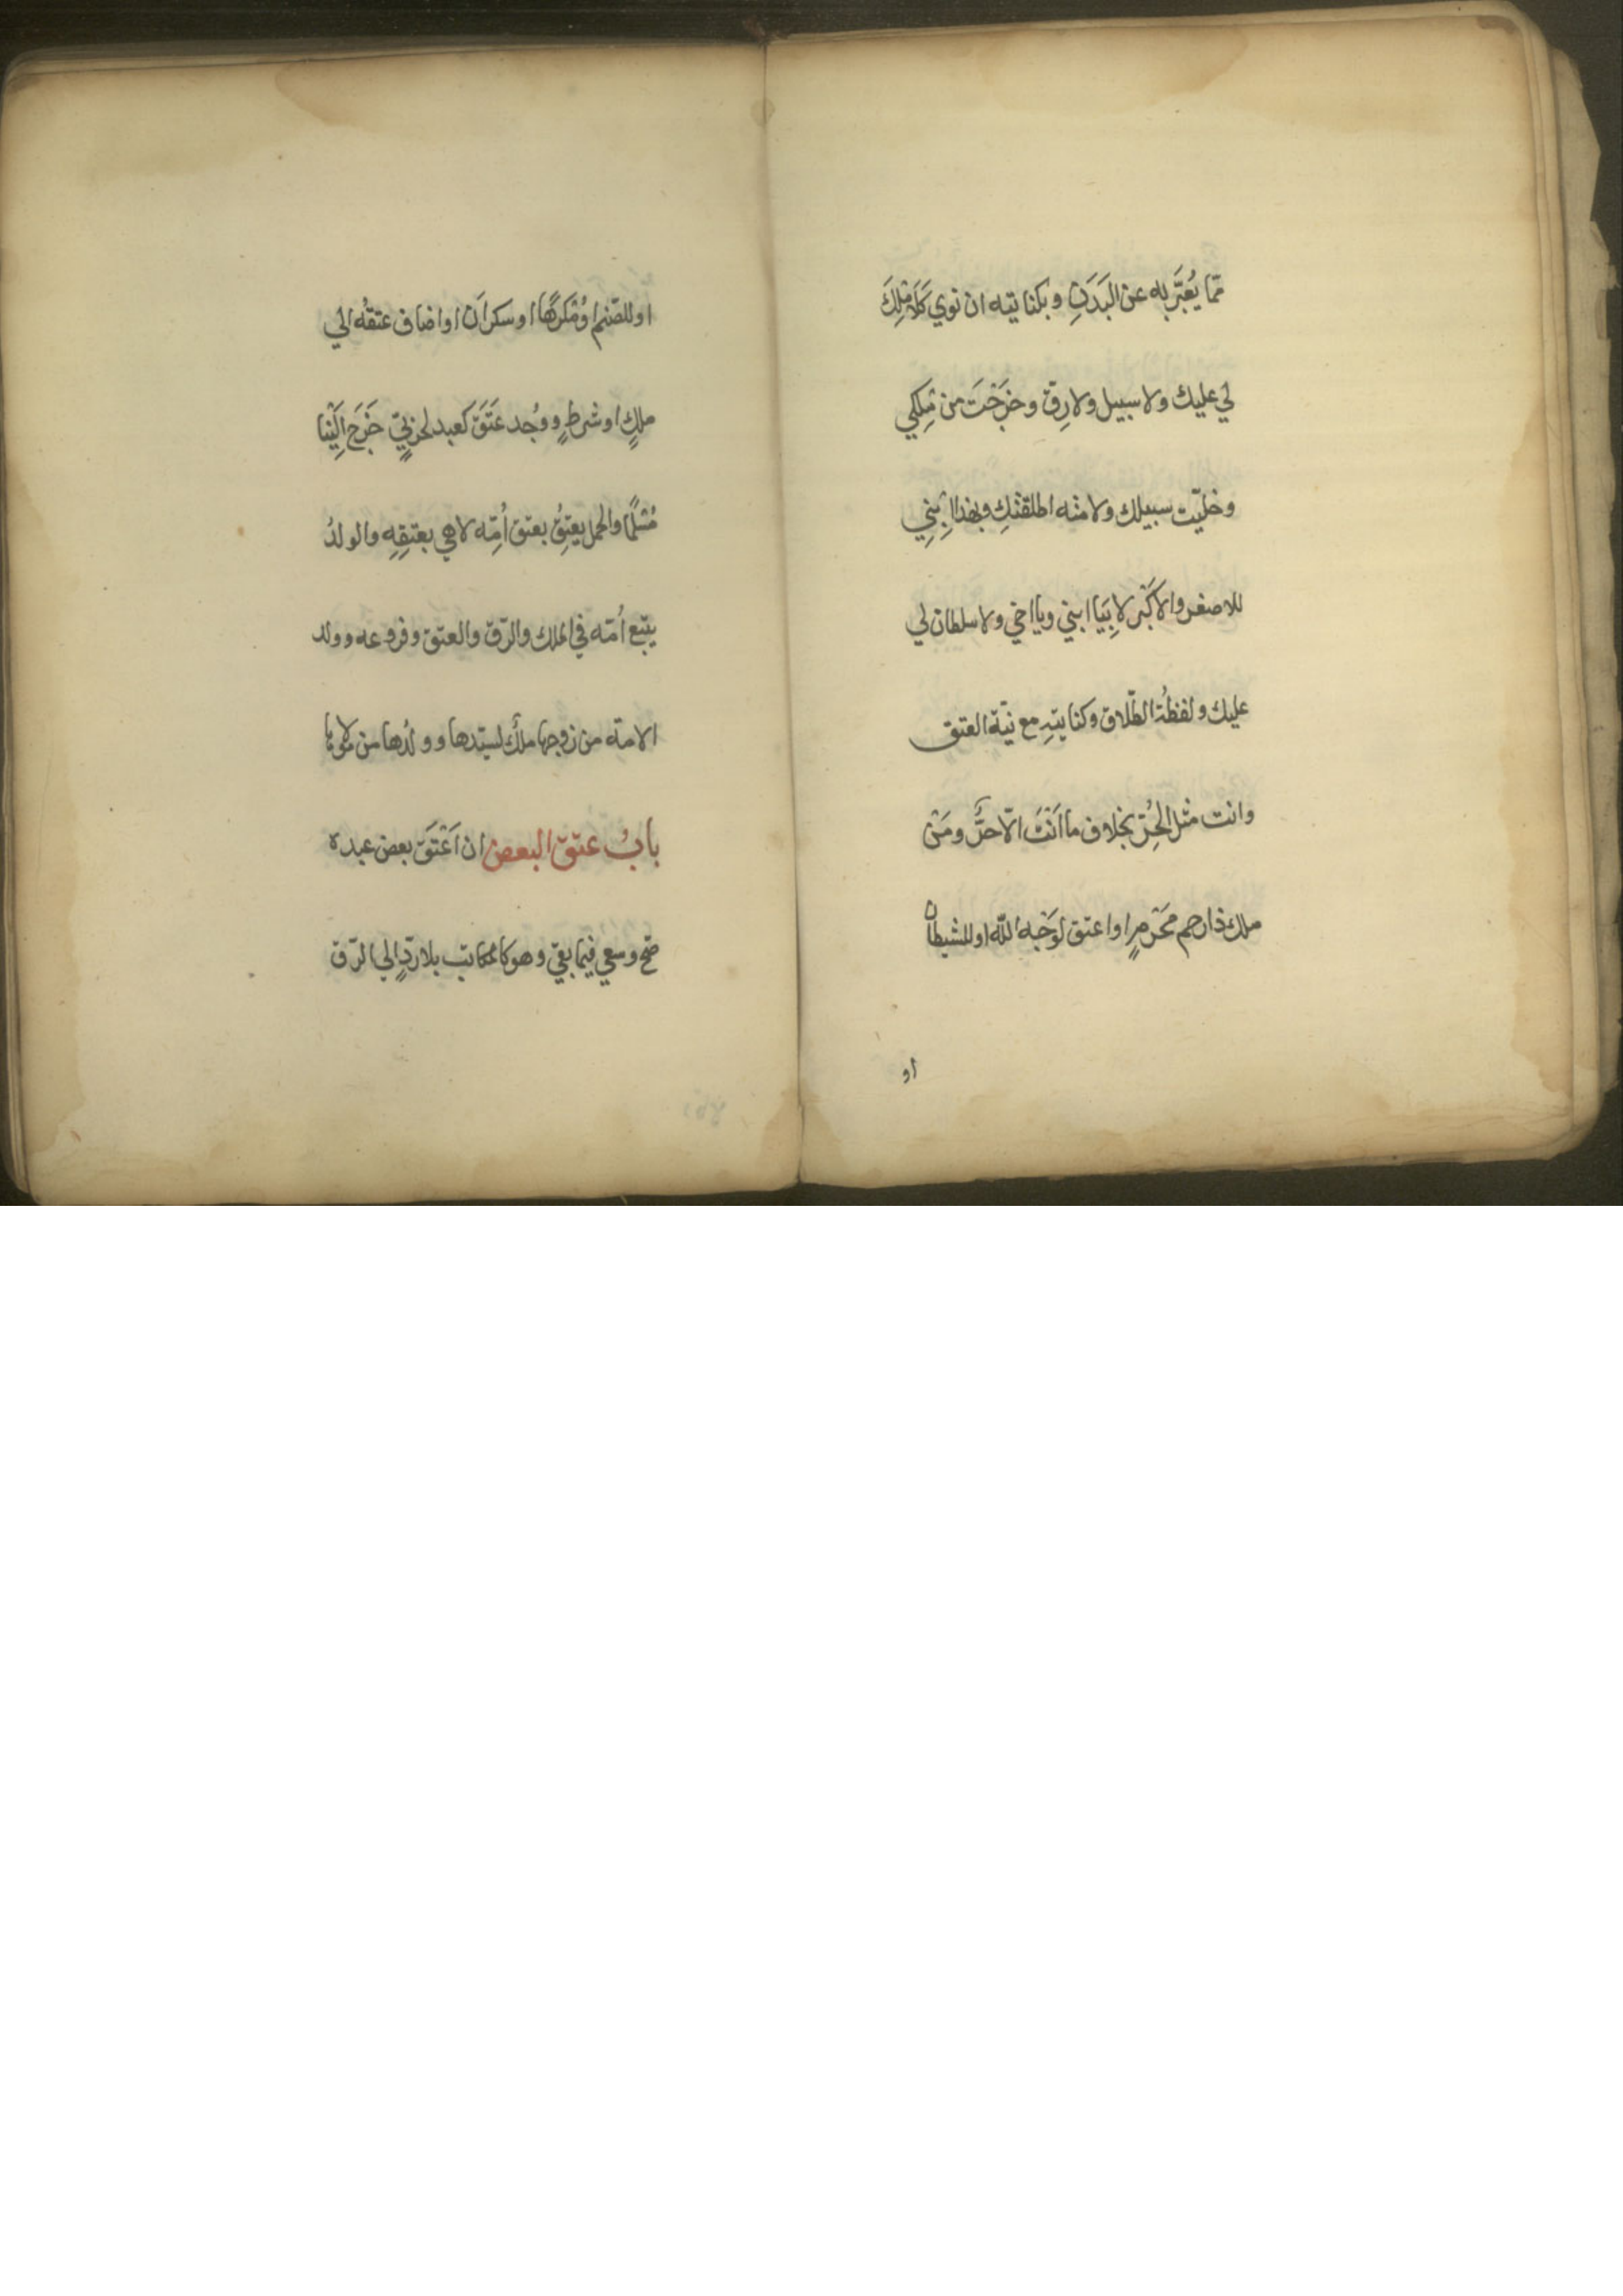 ممّا يُعَبَّر به عن البَدَنِ وبكنايته ان نوي كَلَا مِلكَ
لي عليك ولا سبيل ولا رِقّ وخَرَجْتَ من مِلكي
وخليّت سبيلك ولامته اطلقتكِ وبهذا ابني
للاصغر والاكبر لا بِيَا ابني ويا اخي ولا سلطان لي
عليك ولفظةُ الطّلاق وكنايتهِ مع نيّة العتق
وانت مثل الحُرّ بخلاف ما اَنْتَ الّا حرٌّ ومَنْ
ملك ذا رحم مَحْرَمٍ او اعتق لوَجْه الله او للشيطان
او
او للصّنم او مُكرَهًا او سكرَان او اضاف عتقُه الي
ملكٍ او شرطٍ ووُجد عَتَقَ كعبد لحربيٍّ خَرَجَ اِلَيْنا
مُسْلمًا والحمل يعتِقُ بعتق اُمّه لا هي بعتقِهِ والولدُ
يتبع اُمّه في الملك والرّق والعتق وفروعه وولد
الامة من زوجها ملكٌ لسيّدها وولدُها من مولاها
بابُ عتق البعض ان اَعْتَقَ بعض عبده
صحّ وسعي فيما بقي وهو كالمكاتب بلا ردٍّ الي الرّق